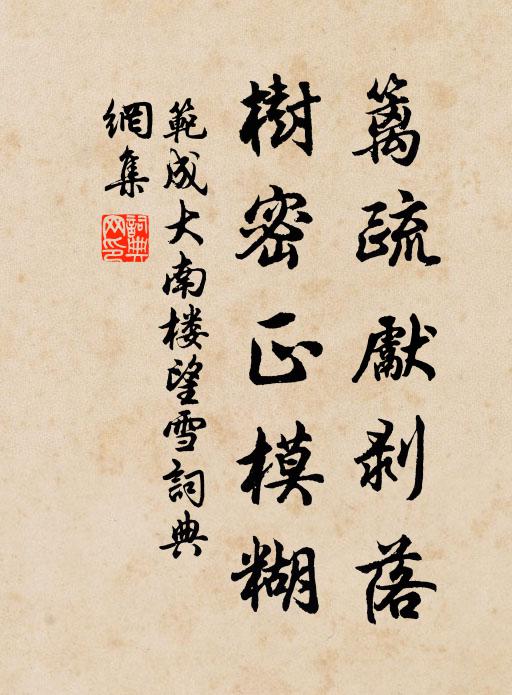 篱疏獻剥落
樹密正模糊
範成大南楼望雪詞典
網集
詞典网印